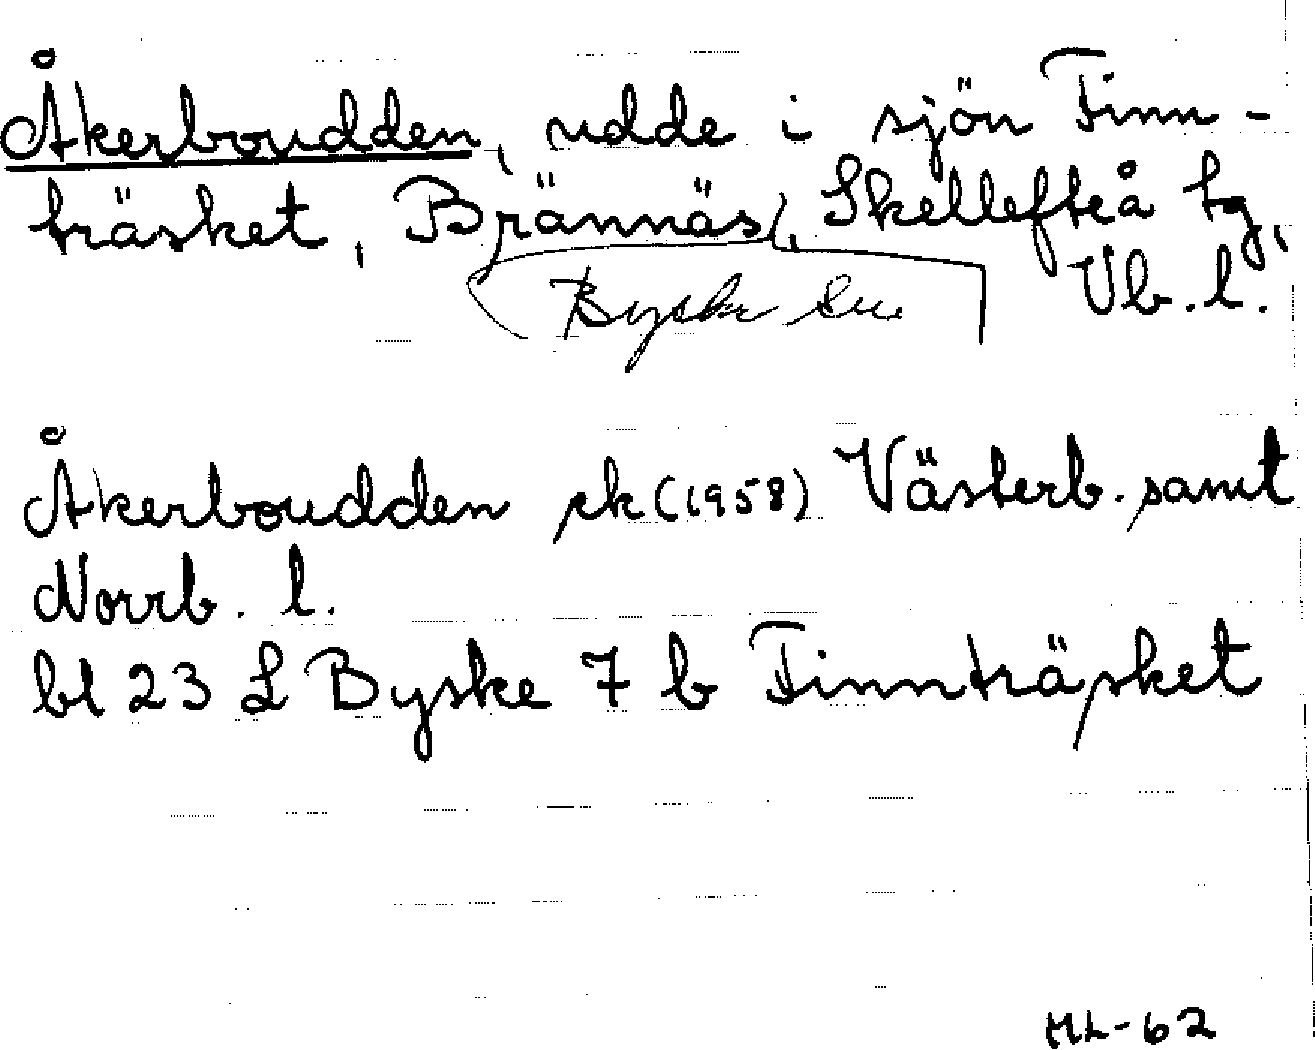 Åkerboudden, udde i sjön Finn-
träsket, Brännäs, Skellefteå tg,
Byske sn
Vb. l.
Åkerboudden ek (1958) Västerb. samt
Norrb. l.
bl 23 L Byske 7 b Finnträsket
ML-62